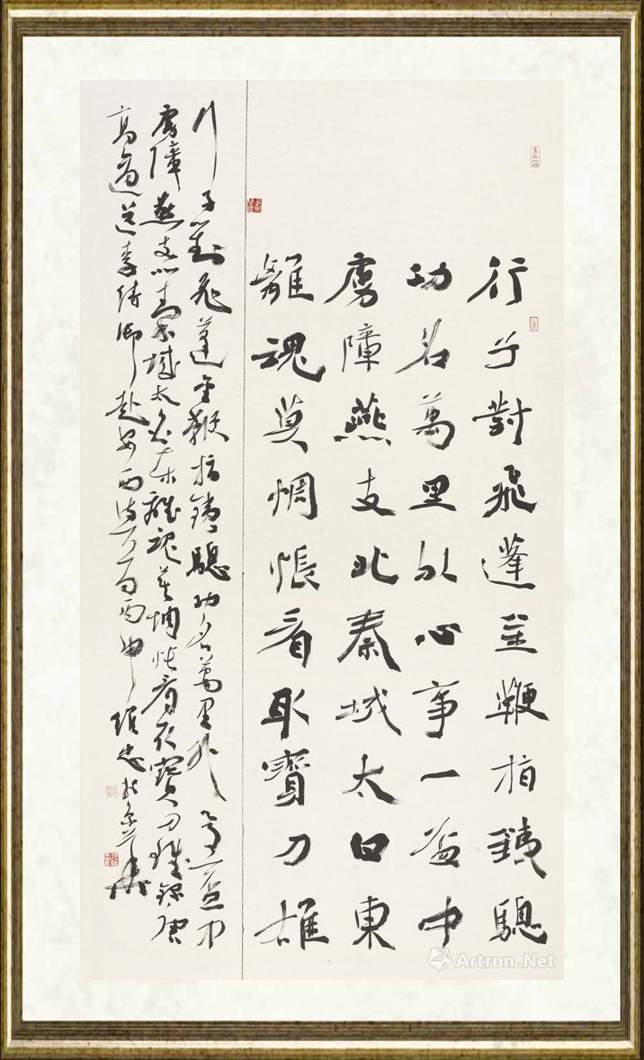 行子對飛蓬金鞭指鐵驄
功名萬里外心事一盃中
虜障燕支北秦城太白東
離魂莫惆悵看取寶刀雄
行子對飛蓬金鞭指鐵驄功名萬里外心事一盃中
虜障燕支北秦城太白東離魂莫惆悵看取寶刀雄錄唐
高適送李侍御赴安西詩一首丙申
Artron.Net